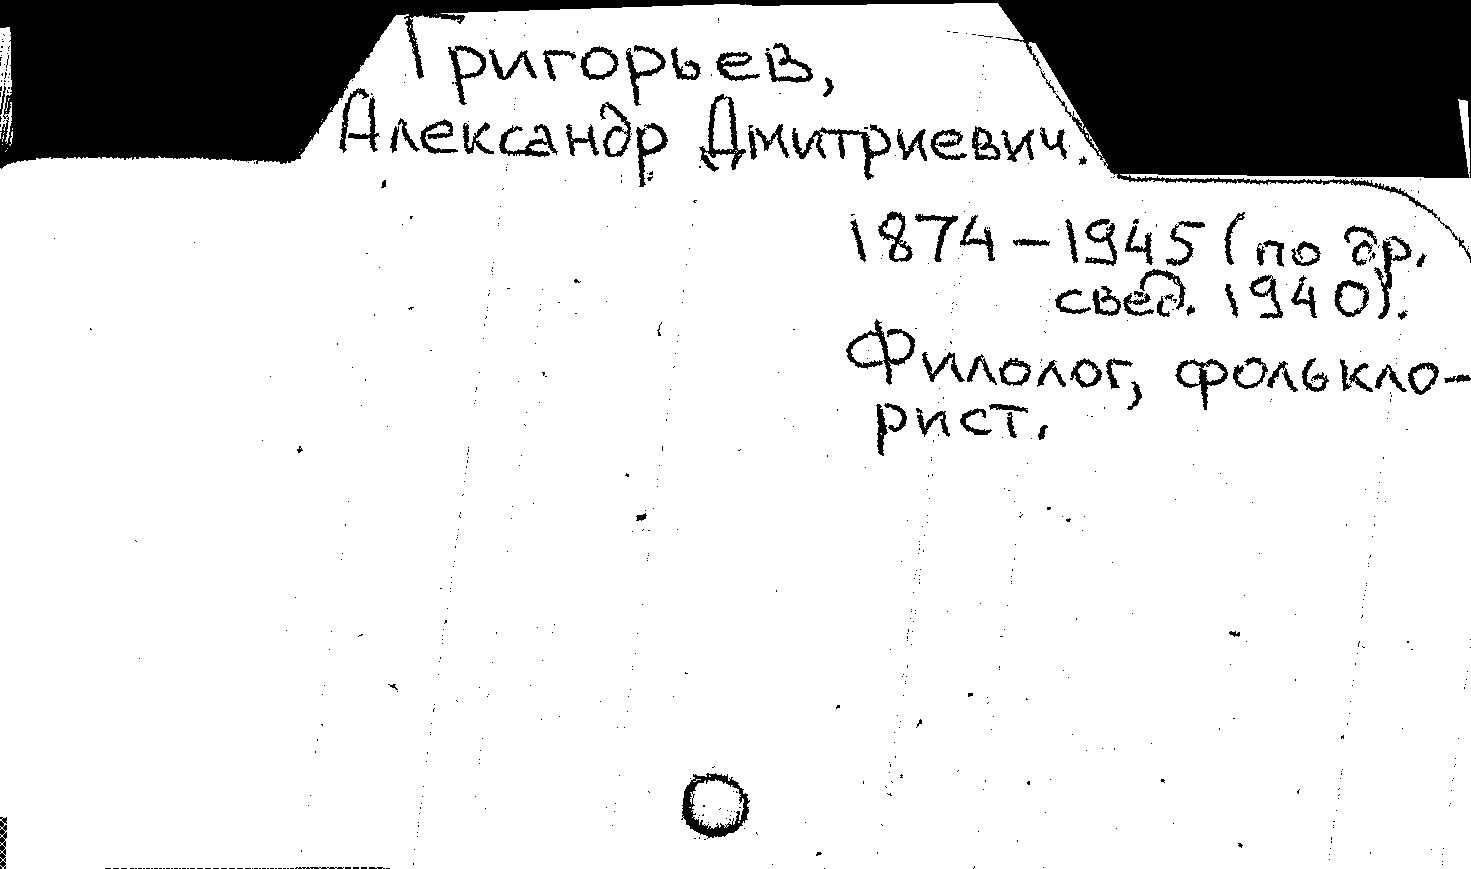 Григорьев,
Александр Дмитриевич.
1874–1945 (по др.
свед. 1940).
Филолог, фолькло-
рист.